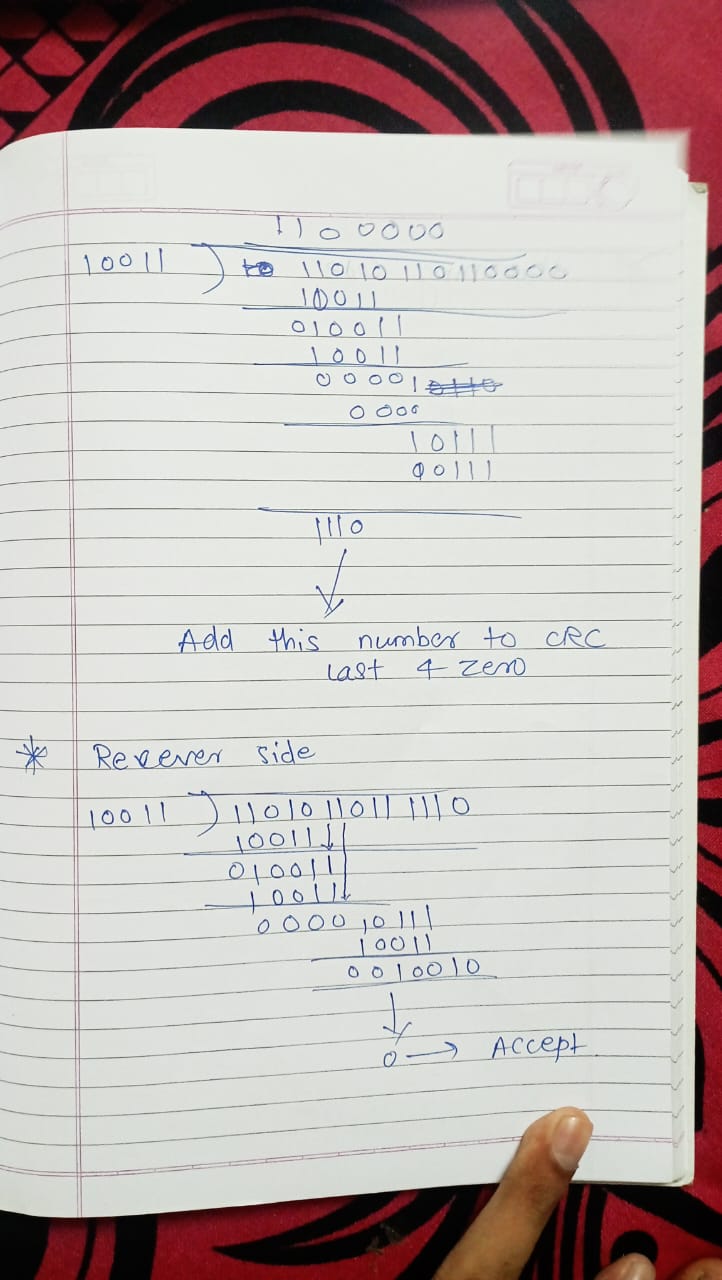 1100000
10011 ) 11010110110000
10011
010011
10011
00001
0000
10111
00111
1110
Add this number to CRC
last 4 zero
* Recever side
10011 ) 11010110111110
10011
010011
10011
000010111
10011
0010010
0 → Accept